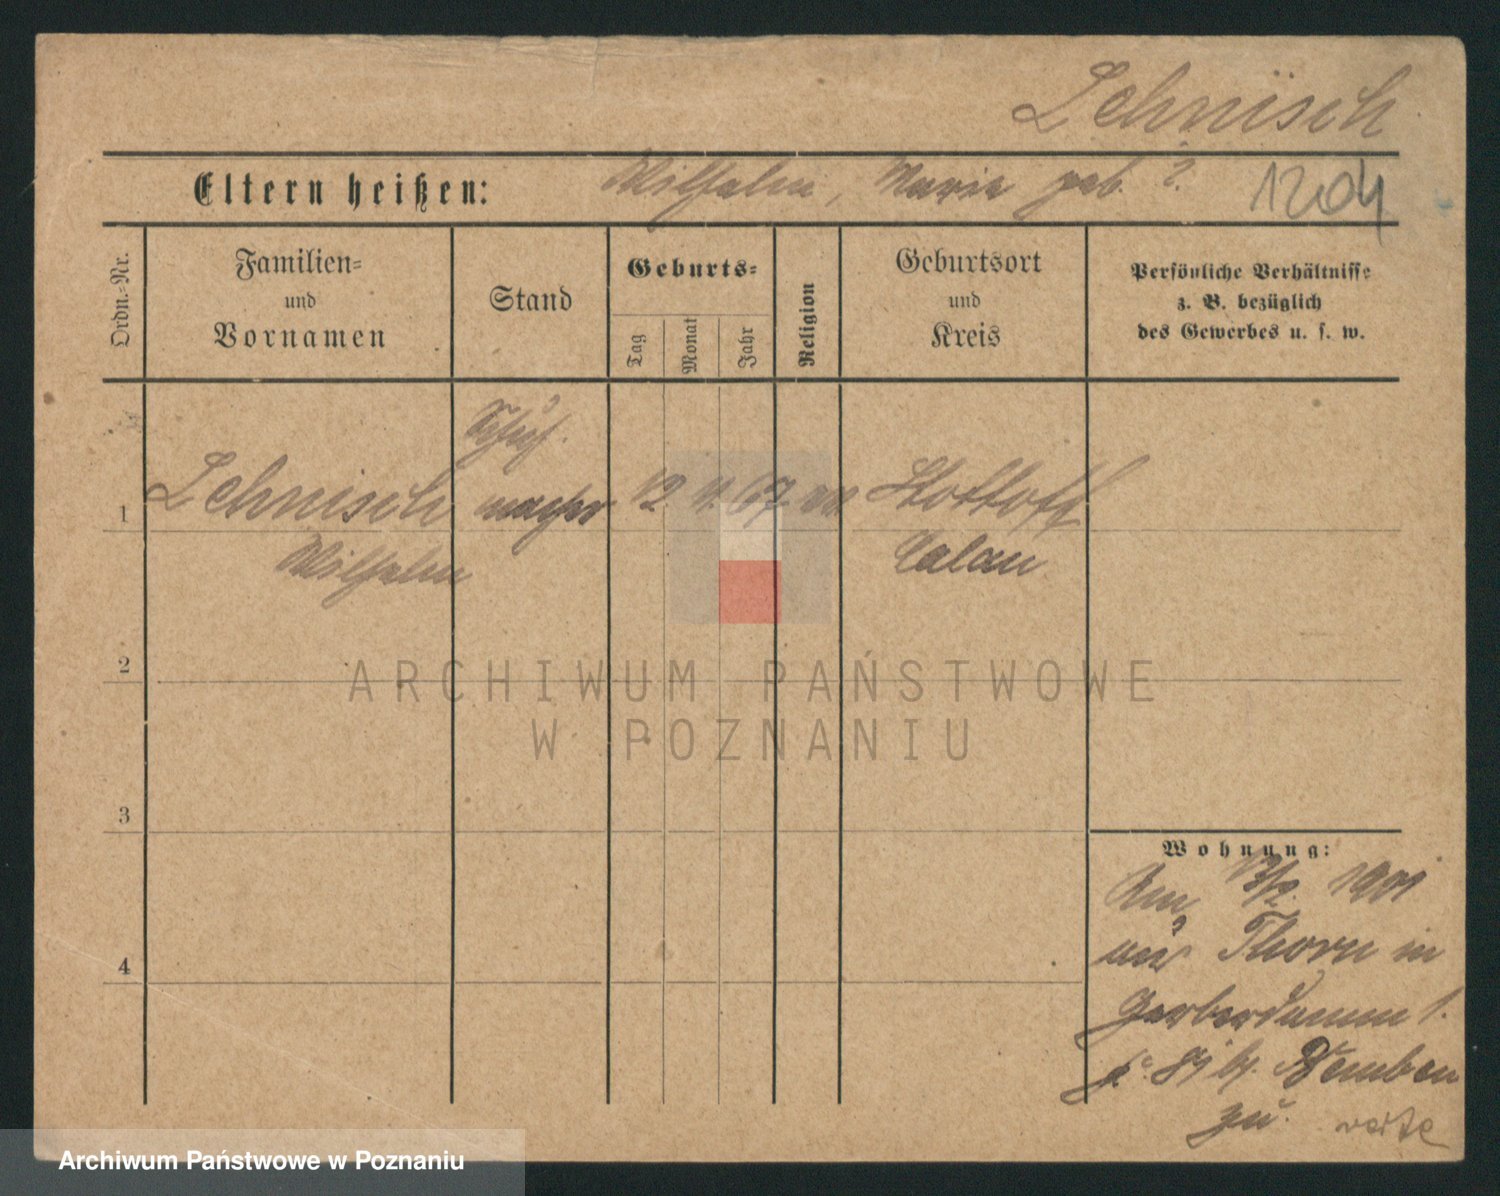 Lehnisch
Eltern heißen: Wilhelm, Marie geb. ?.
1204
Ordn.-Nr.
Familien-
und
Vornamen
Stand
Geburts-
Tag
Monat
Jahr
Religion
Geburtsort
und
Kreis
Persönliche Verhältnisse
z. B. bezüglich
des Gewerbes u. s. w.
1
Schuh-
Lehnisch macher 12. 11. 67.
Wilhelm
Calau
2
3
4
Wohnung:
1901
aus Thorn in
Gerberdamm 1.
zu.
ARCHIWUM PAŃSTWOWE
W POZNANIU
Archiwum Państwowe w Poznaniu